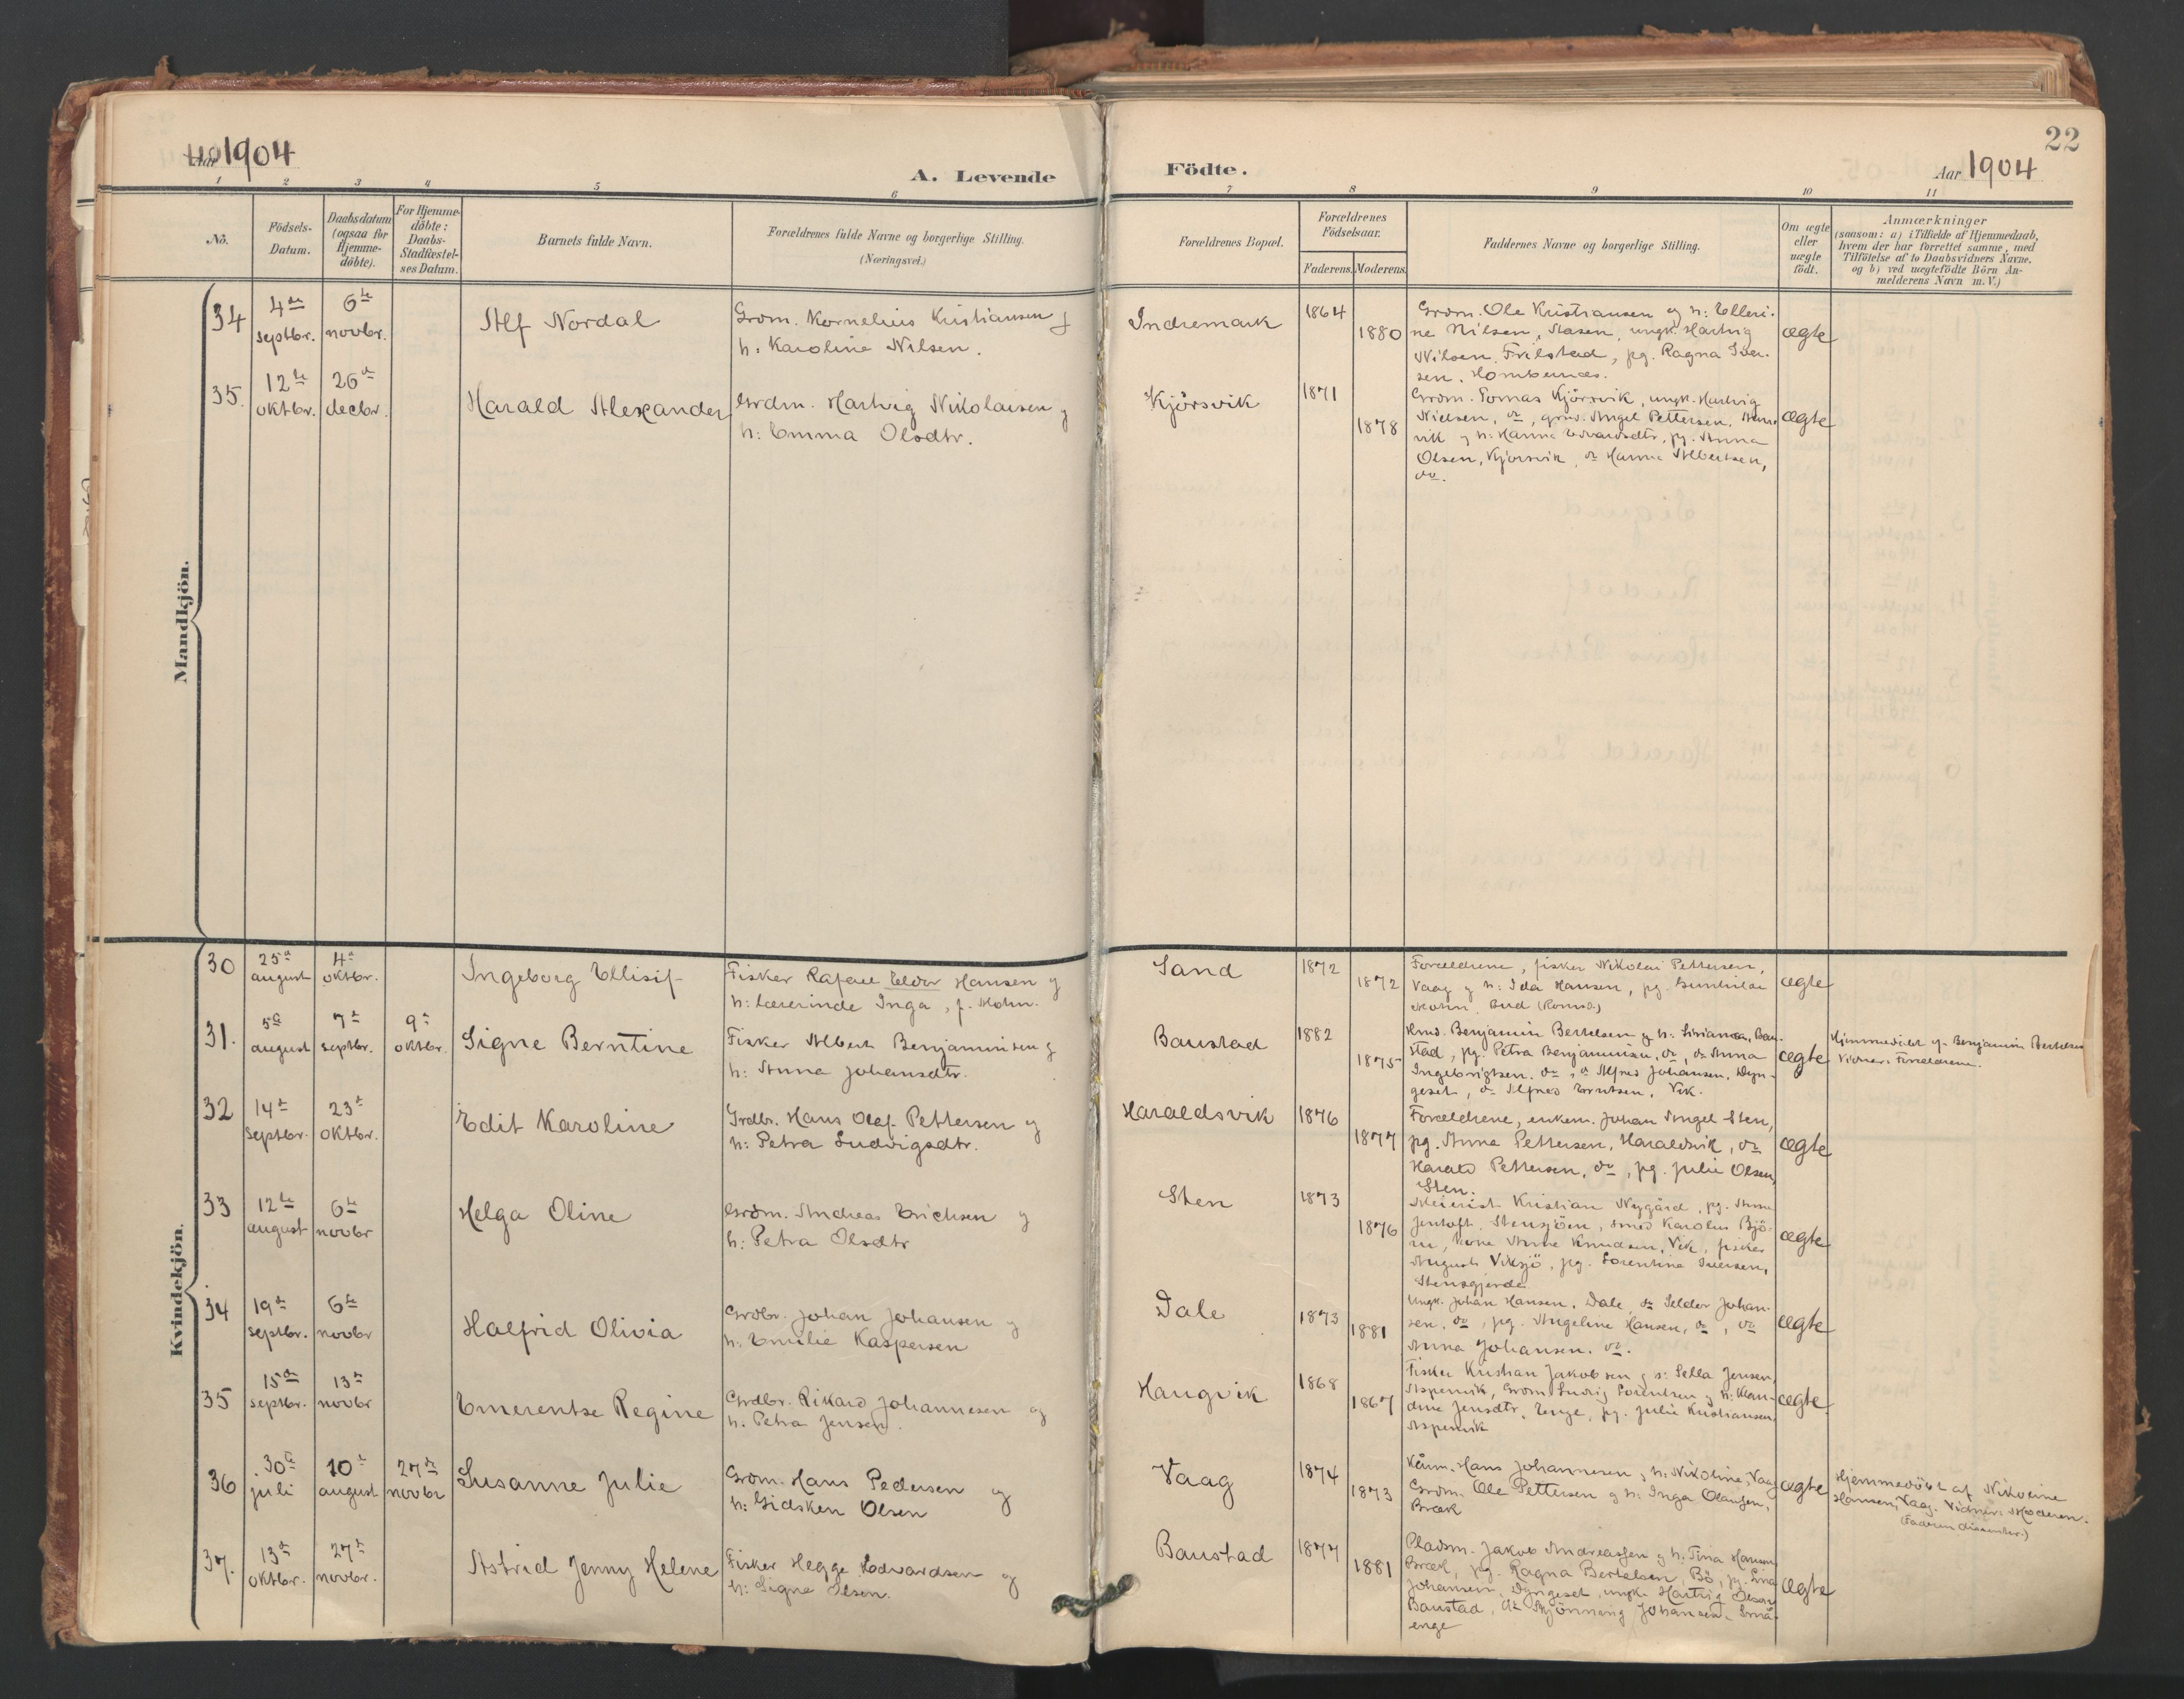 Aar 1904
A. Levende
Födte.
Aar 1904
22
1 2 3 4 5 6 7 8 9 10 11
No.
Födsels-
Datum.
Daabsdatum
(ogsaa for
Hjemme-
döbte).
For Hjemme-
döbte:
Daabs-
Stadfæstel-
ses Datum.
Barnets fulde Navn.
Forældrenes fulde Navne og borgerlige Stilling.
(Næringsvei.)
Forældrenes Bopæl.
Forældrenes
Födselsaar.
Faderens.
Moderens.
Faddernes Navne og borgerlige Stilling.
Om ægte
eller
uægte
födt.
Anmærkninger
(saasom: a) i Tilfælde af Hjemmedaab,
hvem der har forrettet samme, med
Tilföielse af to Daabsvidners Navne.
og b) ved uægtefödte Börn An-
melderens Navn m. V.)
Mandkjön.
34
4de
septbr.
6te
novbr.
Alf Nordal
Grdm. Kornelius Kristiansen og
h: Karoline Nilsen.
Indremark
1864
1880
Grdm. Ole Kristiansen og h: Elleri-
ne Nilsen, Aasen, ungk. Hartvig
Nilsen, Frilstad, pg. Ragna Iver-
sen, Hombornes.
ægte
35.
12te
oktbr.
26de
decbr.
Harald Alexander
Grdm. Hartvig Nikolaisen og
h: Emma Olsdtr.
Kjörsvik
1871
1878
Grdm. Tomas Kjörsvik, ungk. Hartvig
Nielsen, do, grdm. Angel Pettersen,
vik og h: Hanna Edvardsdtr, pg. Anna
Olsen, Kjörsvik, do Hanna Albertsen,
do.
ægte
Kvindekjön.
30
25de
august
4de
oktbr.
Ingeborg Ellisif
Fisker Rafael Eldor Hansen og
h: lærerinde Inga, f. Mohn.
Sand
1872
1872
Forældrene, fisker Nikolai Pettersen,
Vaag og h: Ida Hansen, pg. Gunhilda
Mohn, Bud (Romsd.)
ægte
31.
5te
august
7de
septbr.
9de
oktbr.
Signe Berntine
Fisker Albert Benjaminsen og
h: Anna Johansdtr.
Baustad
1882
1875
Hmd. Benjamin Bertelsen og h: Livianna, Bau-
stad, pg. Petra Benjaminsen, do, do Anna
Ingebrigtsen, do, do Alfred Johansen, Dyn-
geset, do Alfred Erntsen, Vik.
ægte
Hjemmedöbt af Benjamin Bertelsen
Vidner: Forældrene.
32
14de
septbr.
23de
oktbr.
Edit Karoline
Grdbr. Hans Olaf Pettersen og
h: Petra Ludvigsdtr.
Haraldsvik
1876
1877
Forældrene, enkem. Johan Angel Sten,
pg. Anna Pettersen, Haraldsvik, do
Harald Pettersen, do, pg. Julie Olsen,
Sten.
ægte
33
12te
august
6te
novbr
Helga Oline
Grdm. Andreas Erichsen og
h: Petra Olsdtr
Sten
1873
1876
Meierist Kristian Nygård, pg. Anna
Jentoft, Stensjöen, smed Karolus Bjö-
rn, kone Anne Knudsen, Vik, fisker
August Viksjö, pg. Lorentine Iversen,
Stensgjerde
ægte
34
19de
septbr.
6te
novbr
Halfrid Olivia
Grdbr. Johan Johansen og
h: Emilie Kaspersen
Dale
1873
1881
Ungk. Johan Hansen, Dale, do Selder Johan-
sen, do, pg. Angeline Hansen, do, do
Anna Johansen, do.
ægte
35
15de
septbr.
13de
novbr
Emerentse Regine
Grdbr. Rikard Johannesen og
h. Petra Jensen.
Haugvik
1868
1867
Fisker Kristian Jakobsen og s: Sella Jensen,
Aspervik, Grdm. Ludvig Lorentsen og h: Klau-
dine Jensdtr, Enge, pg. Julie Kristiansen,
Aspervik
ægte
36
30te
juli
10de
august
27de
novbr
Susanne Julie
Grdm. Hans Pedersen og
h: Gidsken Olsen
Vaag
1874
1873
Kårm. Hans Johannesen og h: Nikoline, Vaag
Grdm. Ole Pettersen og h: Inga Olausen,
Bræk
ægte
Hjemmedöbt af Nikoline
Hansen, Vaag. Vidner: Moderen.
(Faderen dissenter.)
37.
13de
oktbr.
27de
novbr.
Astrid Jenny Helene
Fisker Hegge Edvardsen og
h: Signe Olsen.
Baustad
1877
1881
Pladsm. Jakob Andreassen og h. Tina Hansen,
Bræk, pg. Ragna Bertelsen, Bö, pg. Lina
Johansen, Dyngeset, ungk. Hartvig Olsen
Baustad, do Skjönning Johansen Små-
enge
ægte